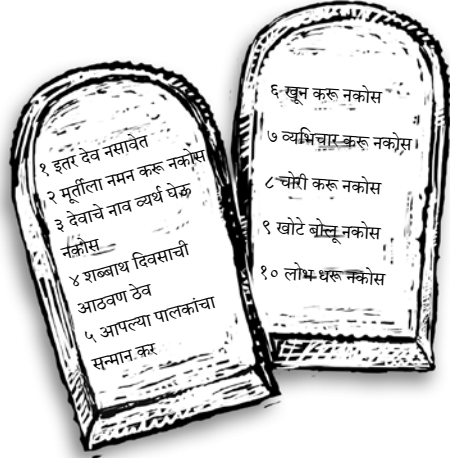 १ इतर देव नसावेत
२ मूर्तीला नमन करू नकोस
३ देवाचे नाव व्यर्थ घेऊ
नकोस
४ शब्बाथ दिवसाची
आठवण ठेव
५ आपल्या पालकांचा
सन्मान कर
६ खून करू नकोस
७ व्यभिचार करू नकोस
८ चोरी करू नकोस
९ खोटे बोलू नकोस
१० लोभ धरू नकोस